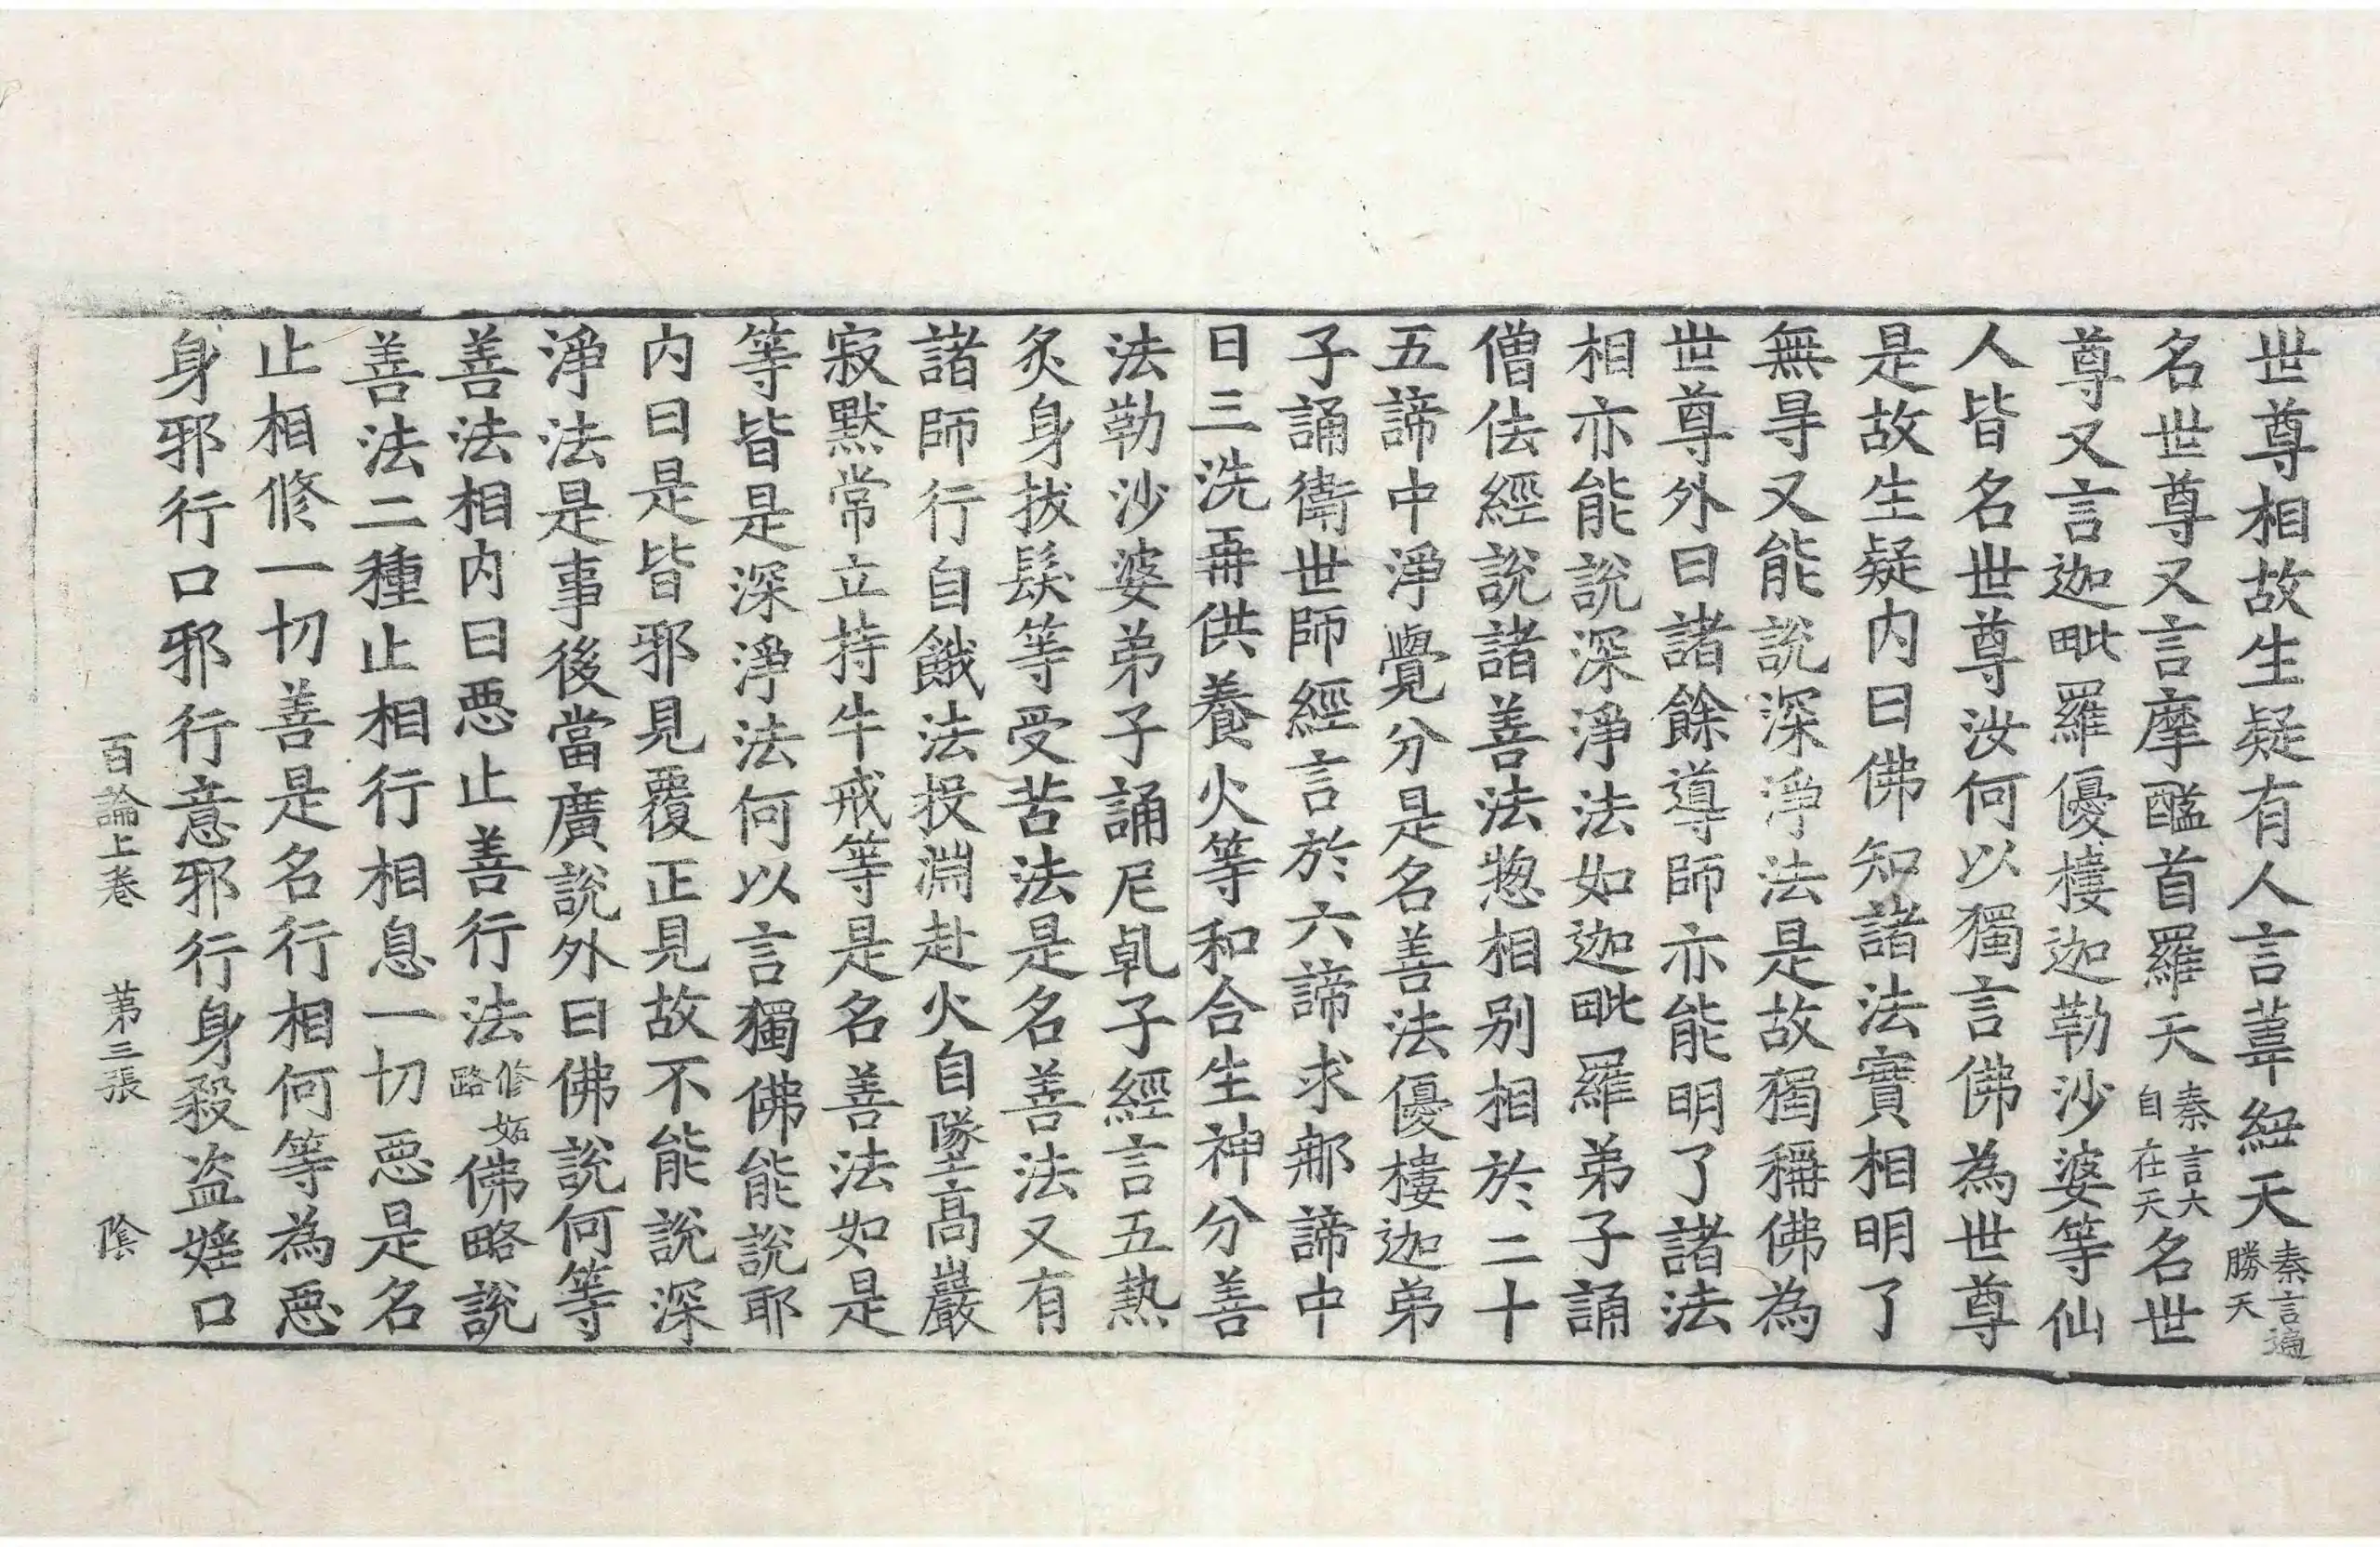 世尊相故生疑有人言葦紐天秦言遍勝天
名世尊又言摩醯首羅天秦言大自在天名世
尊又言迦毗羅優樓迦勒沙婆等仙
人皆名世尊汝何以獨言佛為世尊
是故生疑內曰佛知諸法實相明了
無㝵又能說深淨法是故獨稱佛為
世尊外曰諸餘導師亦能明了諸法
相亦能說深淨法如迦毗羅弟子誦
僧佉經說諸善法惣相別相於二十
五諦中淨覺分是名善法優樓迦弟
子誦衛世師經言於六諦求那諦中
日三洗再供養火等和合生神分善
法勒沙婆弟子誦尼乹子經言五熱
炙身拔髮等受苦法是名善法又有
諸師行自餓法投淵赴火自墜高巖
寂默常立持牛戒等是名善法如是
等皆是深淨法何以言獨佛能說耶
內曰是皆邪見覆正見故不能說深
淨法是事後當廣說外曰佛說何等
善法相內曰惡止善行法修妬路佛略說
善法二種止相行相息一切惡是名
止相修一切善是名行相何等為惡
身邪行口邪行意邪行身殺盜婬口
百論上卷 苐三張 陰